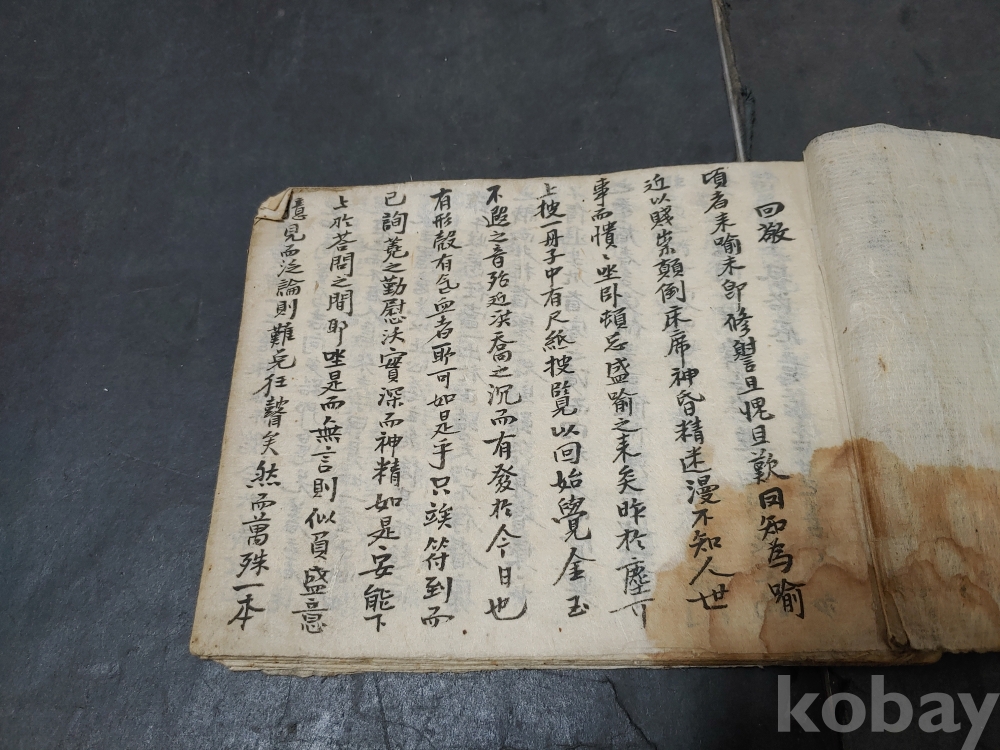 回激
頃者未喻未即修謝且愧且歎回知為喻
近以賤祟顛倒床席神昏精迷漫不知人世
事而憒〻坐卧頓忘盛喻之来矣昨於塵
上披一册子中有尺紙披覽以回始覺金玉
不遐之音殆近洪喬之沉而有發於今日也
有形殼有气血者耶可如是乎只竢符到而
已詢蕘之勤慰沃實深而神精如是安能下
上於荅問之間耶坐是而無言則似負盛意
臆見而泛論則難免狂瞽矣然而萬殊一本
kobay